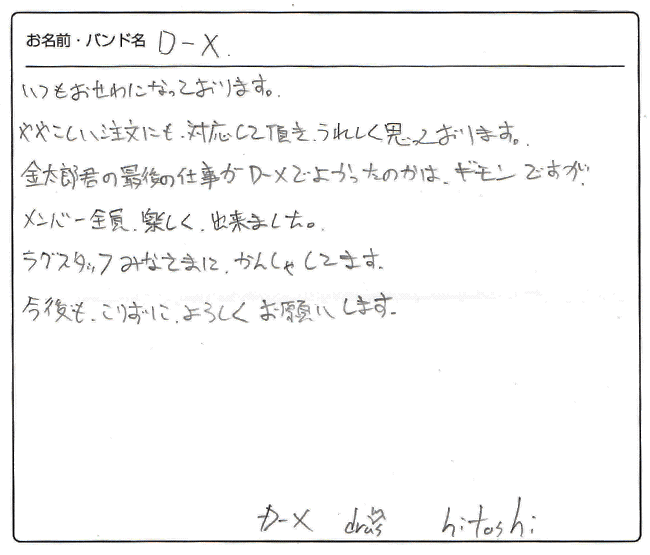 お名前・バンド名 D-X.
いつもおせわになっております。
ややこしい注文にも、対応して頂き、うれしく思っております。
金太郎君の最後の仕事が D-Xでよかったのかは、ギモンですが、
メンバー全員、楽しく、出来ました。
ラグスタッフみなさまに、かんしゃしてます。
今後も、こりずに、よろしくお願いします。
D-X hitoshi